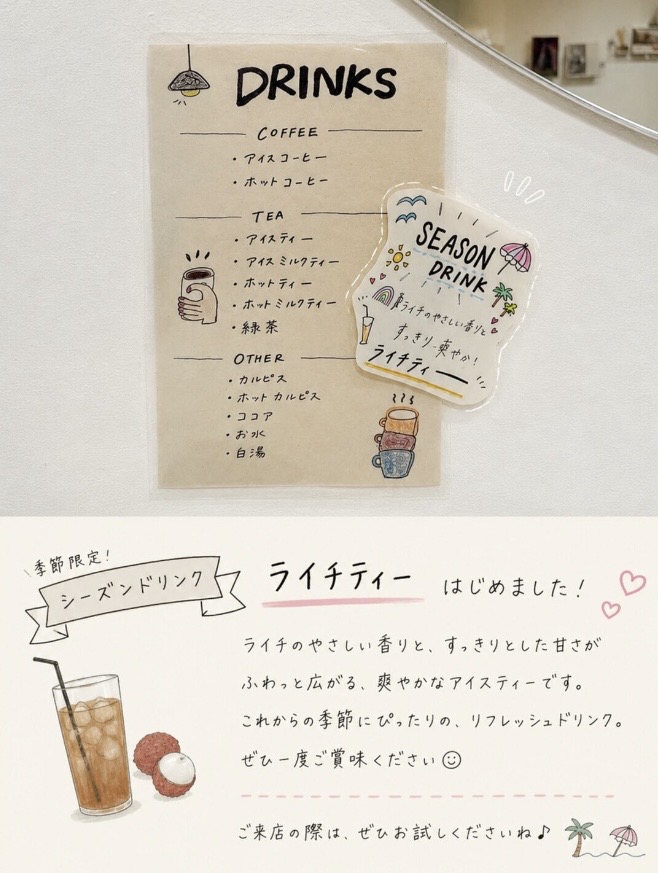 DRINKS
COFFEE
・アイスコーヒー
・ホットコーヒー
TEA
・アイスティー
・アイスミルクティー
・ホットティー
・ホットミルクティー
・緑茶
OTHER
・カルピス
・ホットカルピス
・ココア
・お水
・白湯
SEASON
DRINK
ライチのやさしい香りと
すっきり爽やか!
ライチティー
季節限定!
シーズンドリンク
ライチティー はじめました!
ライチのやさしい香りと、すっきりとした甘さが
ふわっと広がる、爽やかなアイスティーです。
これからの季節にぴったりの、リフレッシュドリンク。
ぜひ一度ご賞味ください☺
ご来店の際は、ぜひお試しくださいね♪